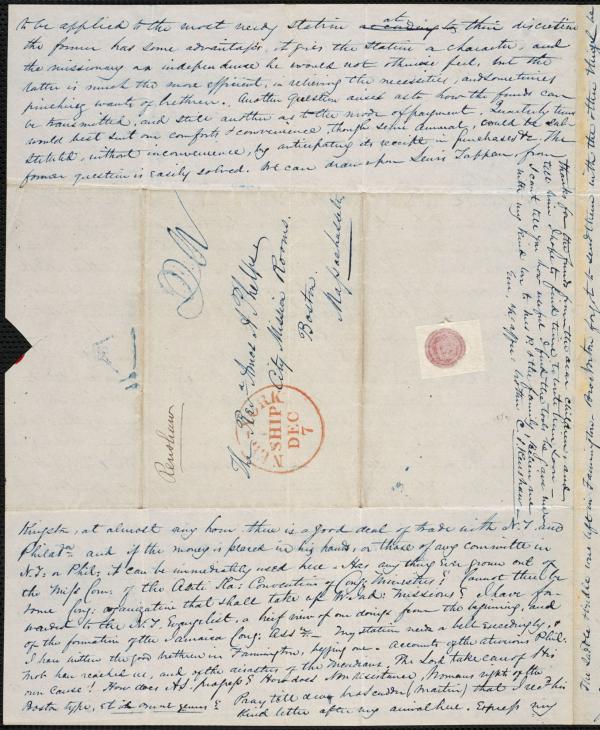 to be applied to the most needy station at their discretion
the former has some advantages, it gives the station a character, and
the missionary an independence he would not otherwise feel, but the
latter is much the more efficient, in relieving the necessities, and sometimes
pinching wants of brethren. Another question arises as to how the funds can
be transmitted, and still another as to the mode of payment. Quarterly terms
would best suit our comfort & convenience though semi annual, could be sub-
stituted, without inconvenience, by anticipating its receipt in purchases &c. The
former question is easily solved. We can draw upon Lewis Tappan, from
thanks for the funds from the dear children, and
tell him I hope to find time to write him soon
I can't tell you how useful I find the tools he gave me
with my kind love to Mrs P. & the family, believe me
Your affe. brother C. S. Renshaw
The Revd Amos A Phelps
City Mission Rooms.
Boston.
Massachusetts
NEW-YORK
SHIP
DEC
7
Renshaw
Kingston, at almost any hour there is a good deal of trade with N.Y. and
Philada and if the money is placed in his hands, or those of any committee in
N.Y. or Phil; it can be immediately used here. Has any thing ever grown out of
the Miss Com: of the Anti Sla: Convention of Cong: Ministers? Cannot there be
some Cong: organization that shall take up W. Ind: Missions? I have for-
warded to the N.Y. Evangelist, a brief view of our doings from the beginning, and
of the formation of the Jamaica Cong: Assn &c. My station needs a bell exceedingly, &
I have written the good brethren in Farmington, begging one. Accounts of the atrocious Phil:
mob have reached us, and of the disasters of the Mendians. The Lord take care of His
own cause! How does AS: progress? How does Non Resistance, Womans rights of the
Boston type, et id omne genus?
Pray tell dear brother (Martin) that I recd his
kind letter after my arrival here. Express my